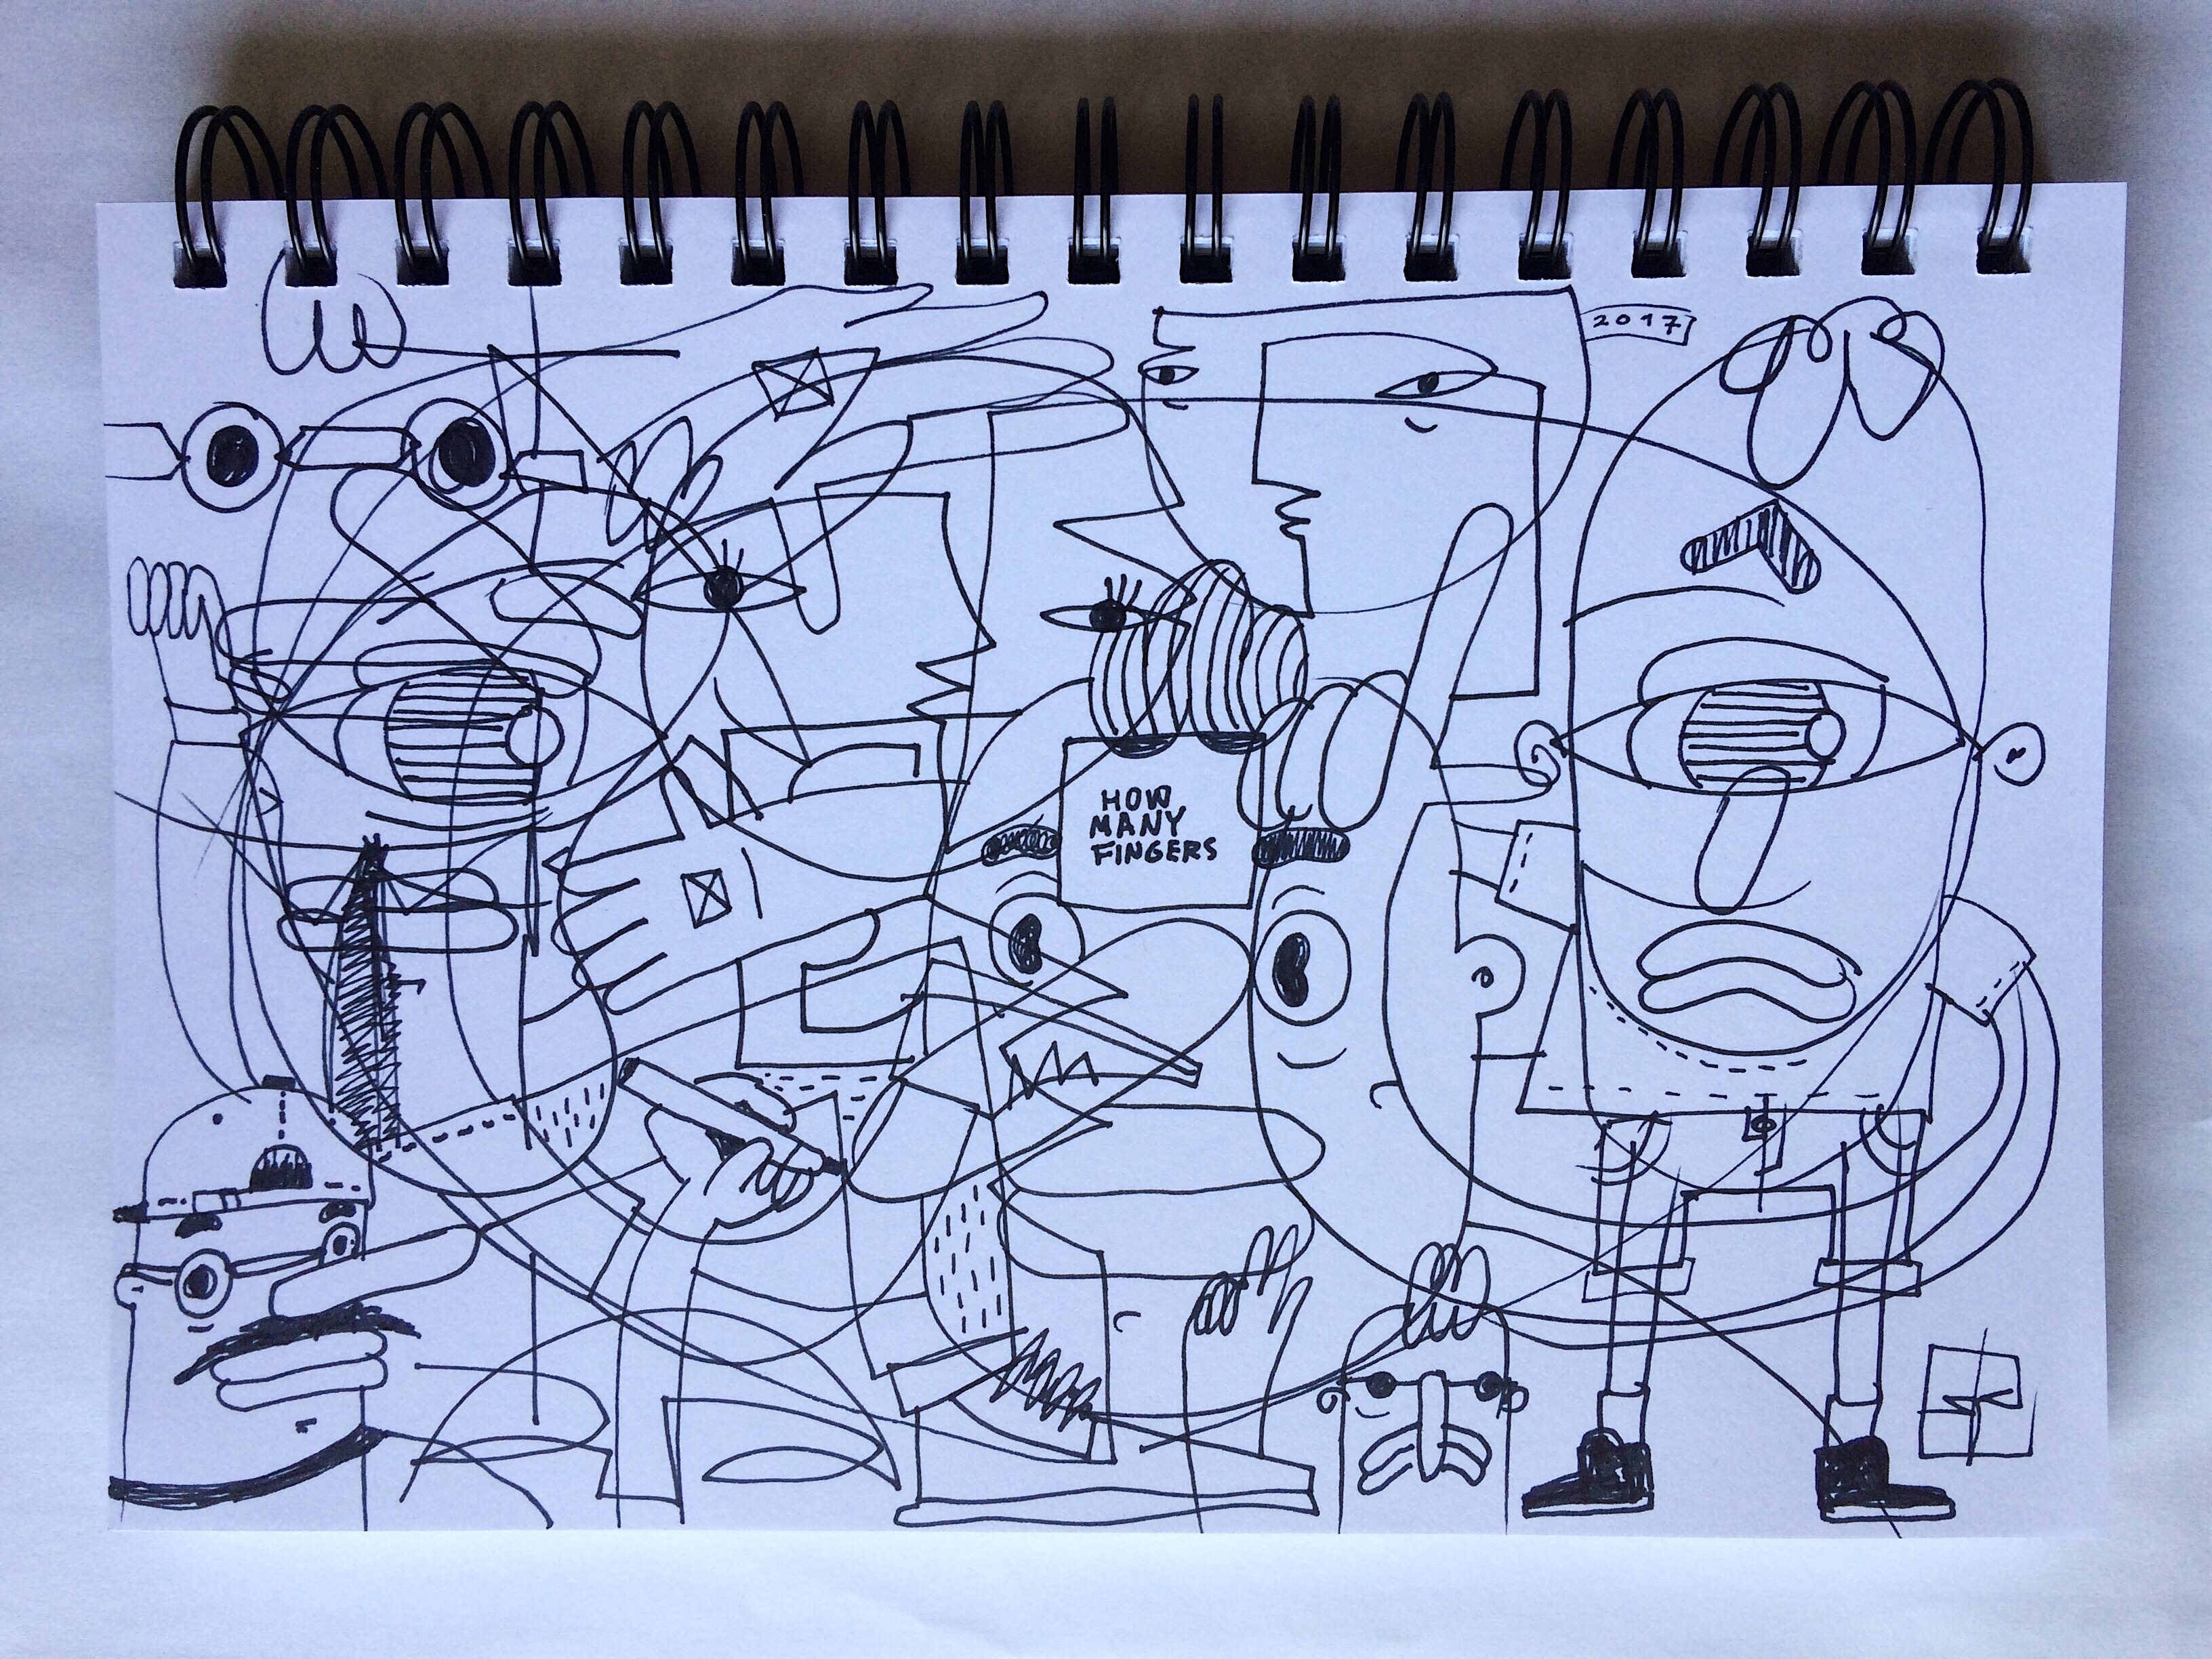 2017
HOW
MANY
FINGERS